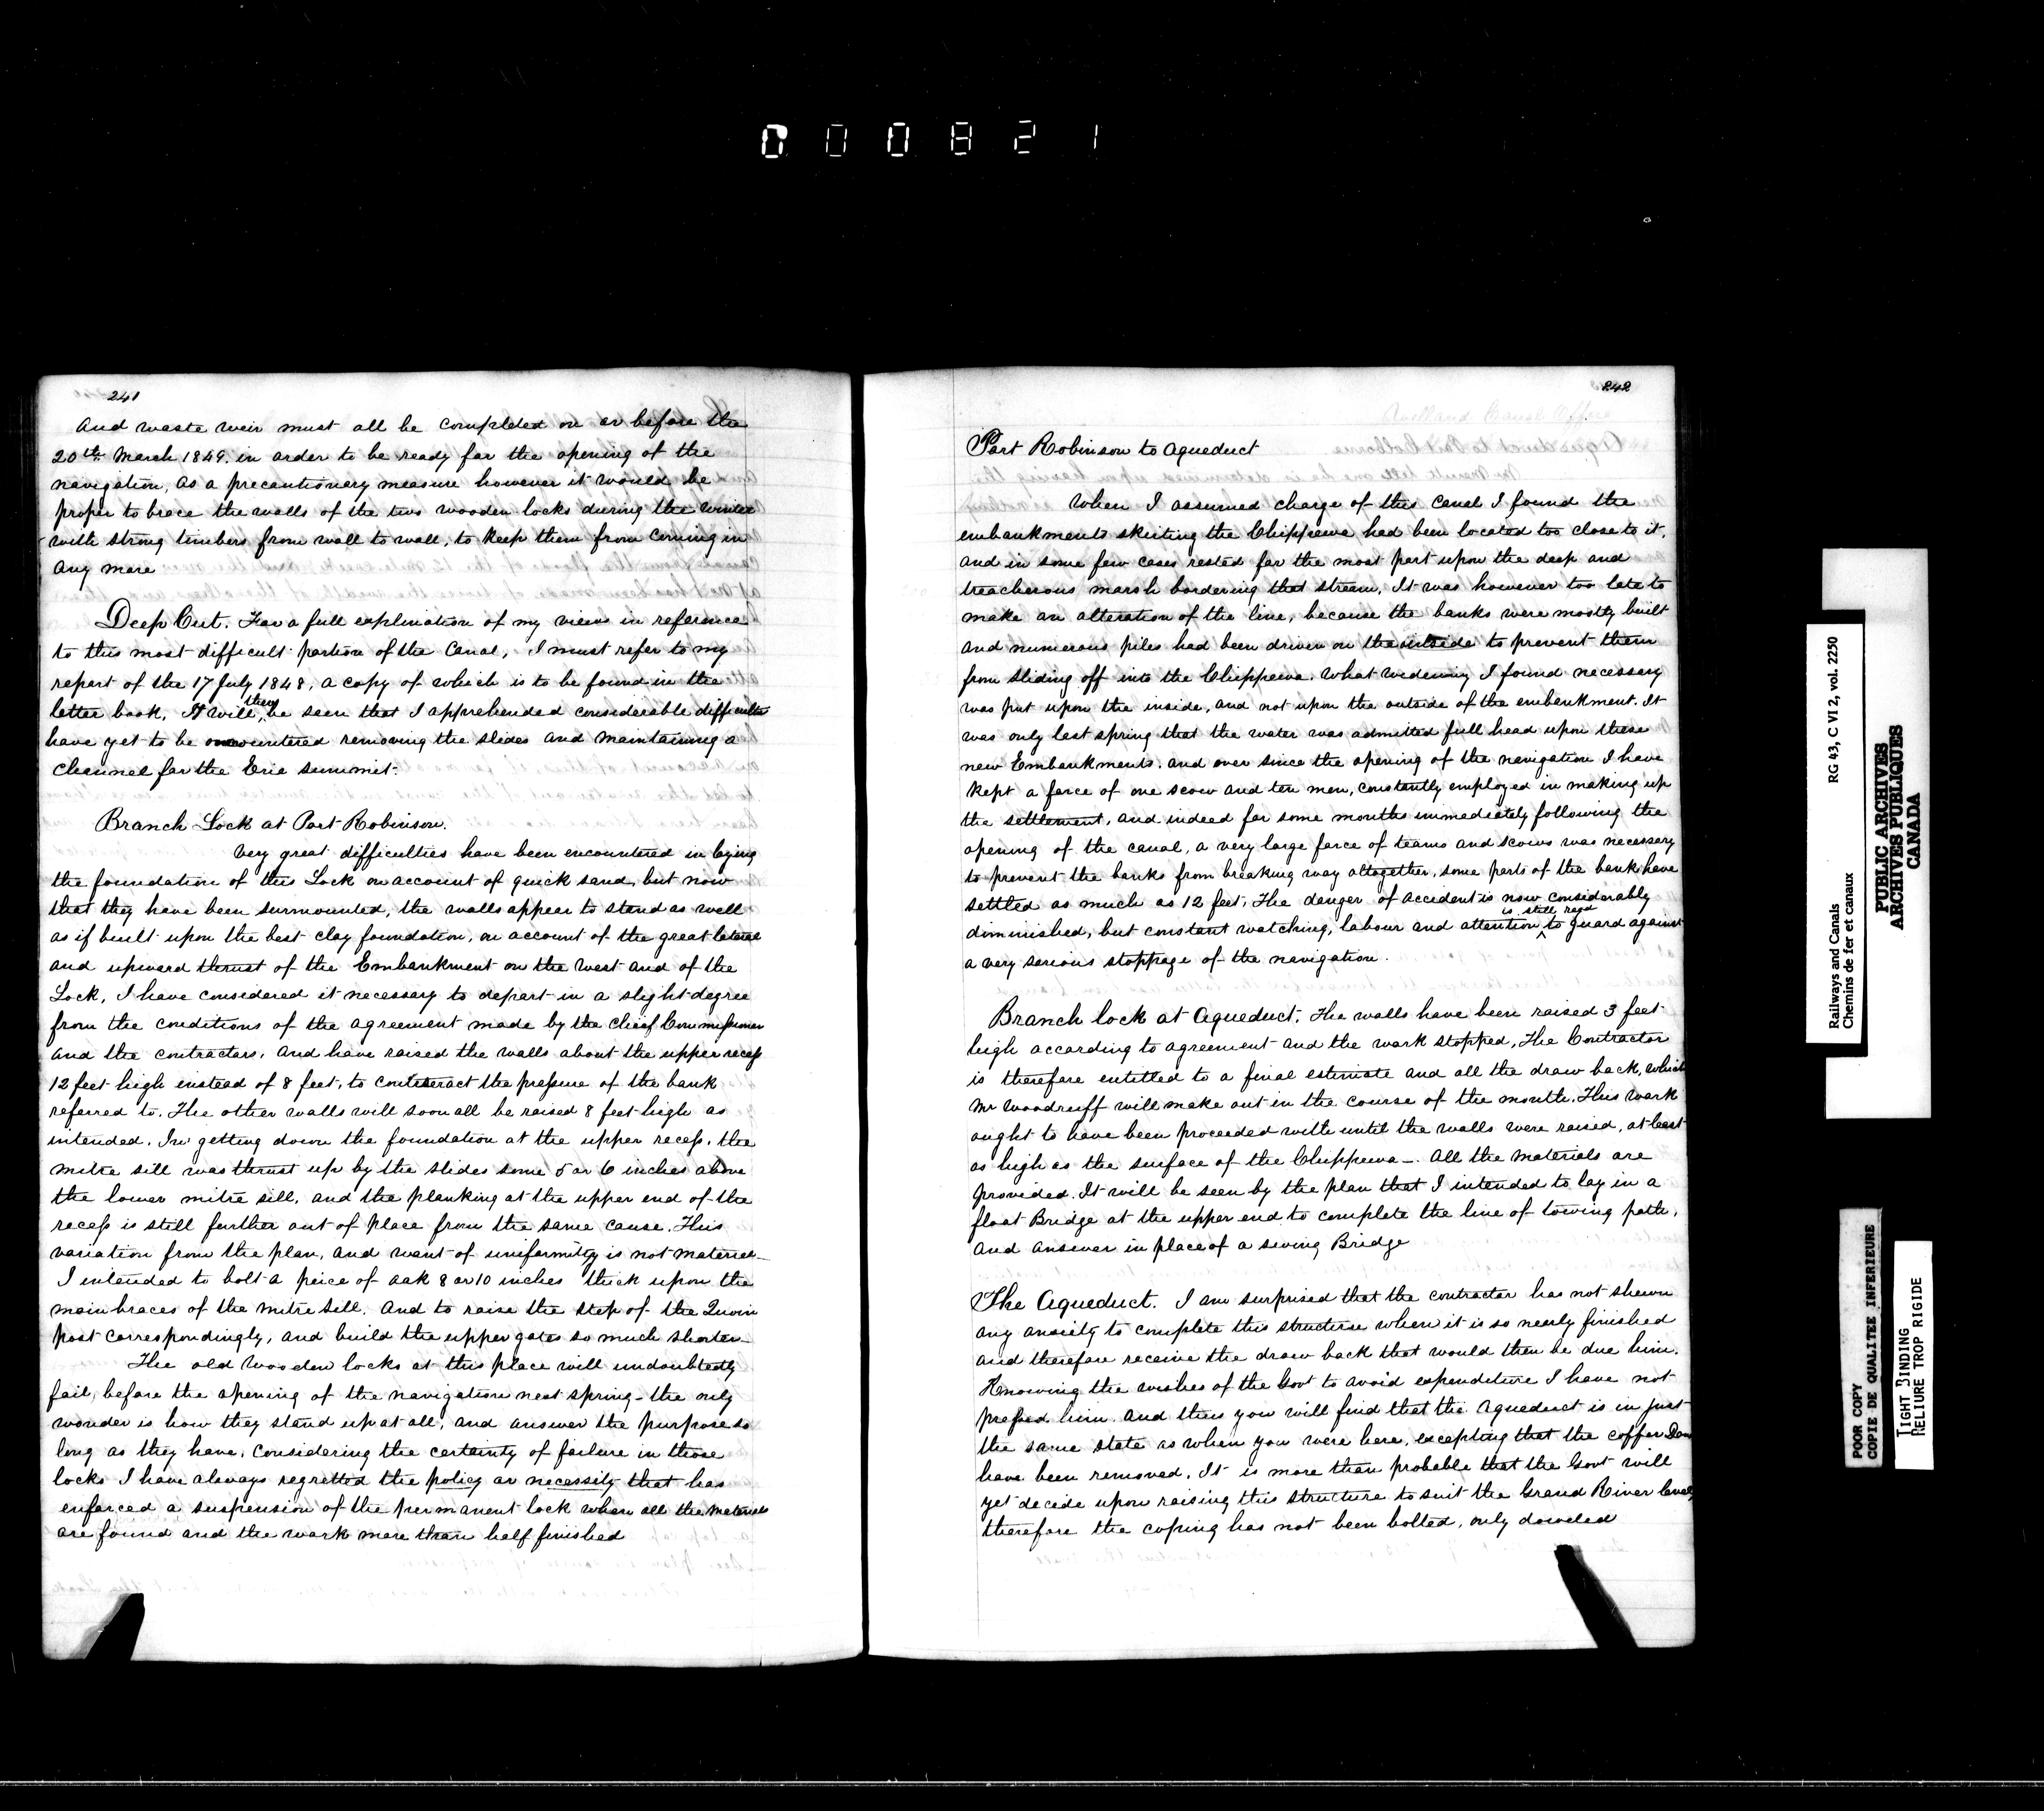 000821
241
and waste weir must all be completed on or before the
20th March 1849. in order to be ready for the opening of the
navigation, as a precautionary measure however it would be
proper to brace the walls of the two wooden locks during the winter
with strong timbers from wall to wall, to keep them from coming in
any more
Deep Cut. For a full explination of my views in reference
to this most difficult portion of the Canal, I must refer to my
report of the 17 July 1848, a copy of which is to be found in the
letter book. It will then be seen that I apprehended considerable difficulties
have yet to be encountered removing the slides and maintaining a
channel for the Erie summit.
Branch Lock at Port Robinson.
Very great difficulties have been encountered in laying
the foundation of this Lock on account of quick sand, but now
that they have been surmounted, the walls appear to stand as well
as if built upon the best clay foundation, on account of the great lateral
and upward thrust of the Embankment on the west and of the
Lock, I have considered it necessary to depart in a slight degree
from the conditions of the agreement made by the Chief Commissioner
and the contractors, and have raised the walls about the upper recess
12 feet high instead of 8 feet, to counteract the pressure of the bank
referred to. The other walls will soon all be raised 8 feet high as
intended. In getting down the foundation at the upper recess, the
mitre sill was thrust up by the slides some 5 or 6 inches above
the lower mitre sill, and the planking at the upper end of the
recess is still further out of place from the same cause. This
variation from the plan, and want of uniformity is not material
I intended to bolt a peice of oak 8 or 10 inches thick upon the
main braces of the mitre sill, and to raise the step of the Quoin
post correspondingly, and build the upper gates so much shorter
The old wooden locks at this place will undoubtedly
fail, before the opening of the navigation next spring - the only
wonder is how they stand up at all, and answer the purpose so
long as they have. Considering the certainty of failure in those
locks I have always regretted the policy or necessity that has
enforced a suspension of the permanent lock when all the materials
are found and the work more than half finished
242
Port Robinson to Aqueduct
When I assumed charge of this Canal I found the
embankments skirting the Chippewa had been located too close to it,
and in some few cases rested for the most part upon the deep and
treacherous marsh bordering that stream. It was however too late to
make an alteration of the line, because the banks were mostly built
and numerous piles had been driven on the outside to prevent them
from sliding off into the Chippewa. What widening I found necessary
was put upon the inside, and not upon the outside of the embankment. It
was only last spring that the water was admitted full head upon these
new Embankments. and ever since the opening of the navigation I have
kept a force of one scow and ten men, constantly employed in making up
the settlement, and indeed for some months immediately following the
opening of the canal, a very large force of teams and scows was necessary
to prevent the banks from breaking way altogether, some parts of the bank have
settled as much as 12 feet. The danger of accident is now considerably
diminished, but constant watching, labour and attention is still reqd to guard against
a very serious stoppage of the navigation.
Branch lock at Aqueduct. The walls have been raised 3 feet
high according to agreement and the work stopped, The Contractor
is therefore entitled to a final estimate and all the draw back, which
Mr Woodruff will make out in the course of the month. This work
ought to have been proceeded with until the walls were raised, at least
as high as the surface of the Chippewa -. All the materials are
provided. It will be seen by the plan that I intended to lay in a
float Bridge at the upper end to complete the line of towing path,
and answer in place of a swing Bridge
The Aqueduct. I am surprised that the contractor has not shewn
any anxiety to complete this structure when it is so nearly finished
and therefore receive the draw back that would then be due him.
Knowing the wishes of the Govt to avoid expenditure I have not
pressed him. And thus you will find that the Aqueduct is in just
the same state as when you were here, excepting that the coffer Dams
have been removed. It is more than probable that the Govt will
yet decide upon raising this structure to suit the Grand River level,
therefore the coping has not been bolted, only doweled
Railways and Canals RG 43, C VI 2, vol. 2250
Chemins de fer et canaux
PUBLIC ARCHIVES
ARCHIVES PUBLIQUES
CANADA
POOR COPY
COPIE DE QUALITEE INFERIEURE
TIGHT BINDING
RELIURE TROP RIGIDE